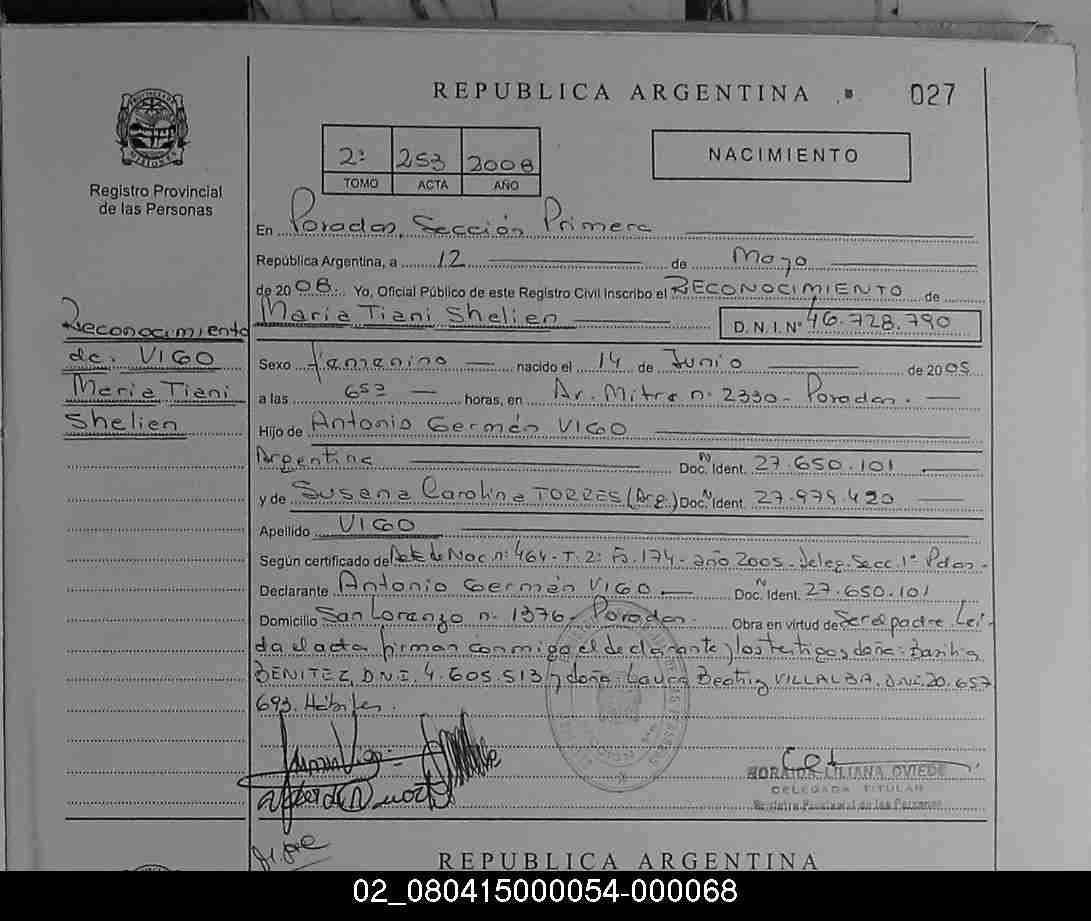 REPUBLICA ARGENTINA
027
Registro Provincial
de las Personas
2º 253 2008
TOMO ACTA AÑO
NACIMIENTO
En Posadas, Sección Primera
República Argentina, a 12 de Mayo
de 2008. Yo, Oficial Público de este Registro Civil inscribo el RECONOCIMIENTO de
Maria Tiani Shelien D.N.I. Nº 46.728.790
Reconocimiento
de: VIGO
Maria Tiani
Shelien
Sexo femenino nacido el 14 de Junio de 2005
a las 653 horas, en Av. Mitre nº 2330- Posadas.
Hijo de Antonio Germán VIGO
Argentina Doc. Ident. 27.650.101
y de Susana Carolina TORRES (Arg.) Doc. Ident. 27.979.420
Apellido VIGO
Según certificado de Acta de Nac. nº 464- T. 2º Fº 174- año 2005- Deleg. Secc. 1º Pdas-
Declarante Antonio Germán VIGO Doc. Ident. 27.650.101
Domicilio San Lorenzo nº 1376- Posadas- Obra en virtud de Ser el padre. Leí-
da el acta firman conmigo el declarante y los testigos doña: Basilia
BENITEZ, D.N.I. 4.605.513 y doña: Laura Beatriz VILLALBA, D.N.I. 20.657
693. Hábiles.
HORAIDA LILIANA OVIEDO
DELEGADA TITULAR
Registro Provincial de las Personas
REPUBLICA ARGENTINA
02_080415000054-000068